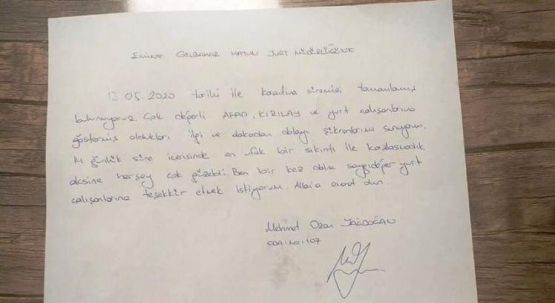 Emine Gülbahar Hatun Yurt Müdürlüğüne
13.05.2020 tarihi ile karantina süremizi tamamlamış
bulunuyoruz. Çok değerli AFAD, KIZILAY ve yurt çalışanlarına
göstermiş oldukları ilgi ve alakadan dolayı şükranlarımı sunuyorum.
14 günlük süre içerisinde en ufak bir sıkıntı ile karşılaşmadık
aksine herşey çok güzeldi. Ben bir kez daha saygıdeğer yurt
çalışanlarına teşekkür etmek istiyorum. Allah'a emanet olun
Mehmet Ozan
ODA: No: 107